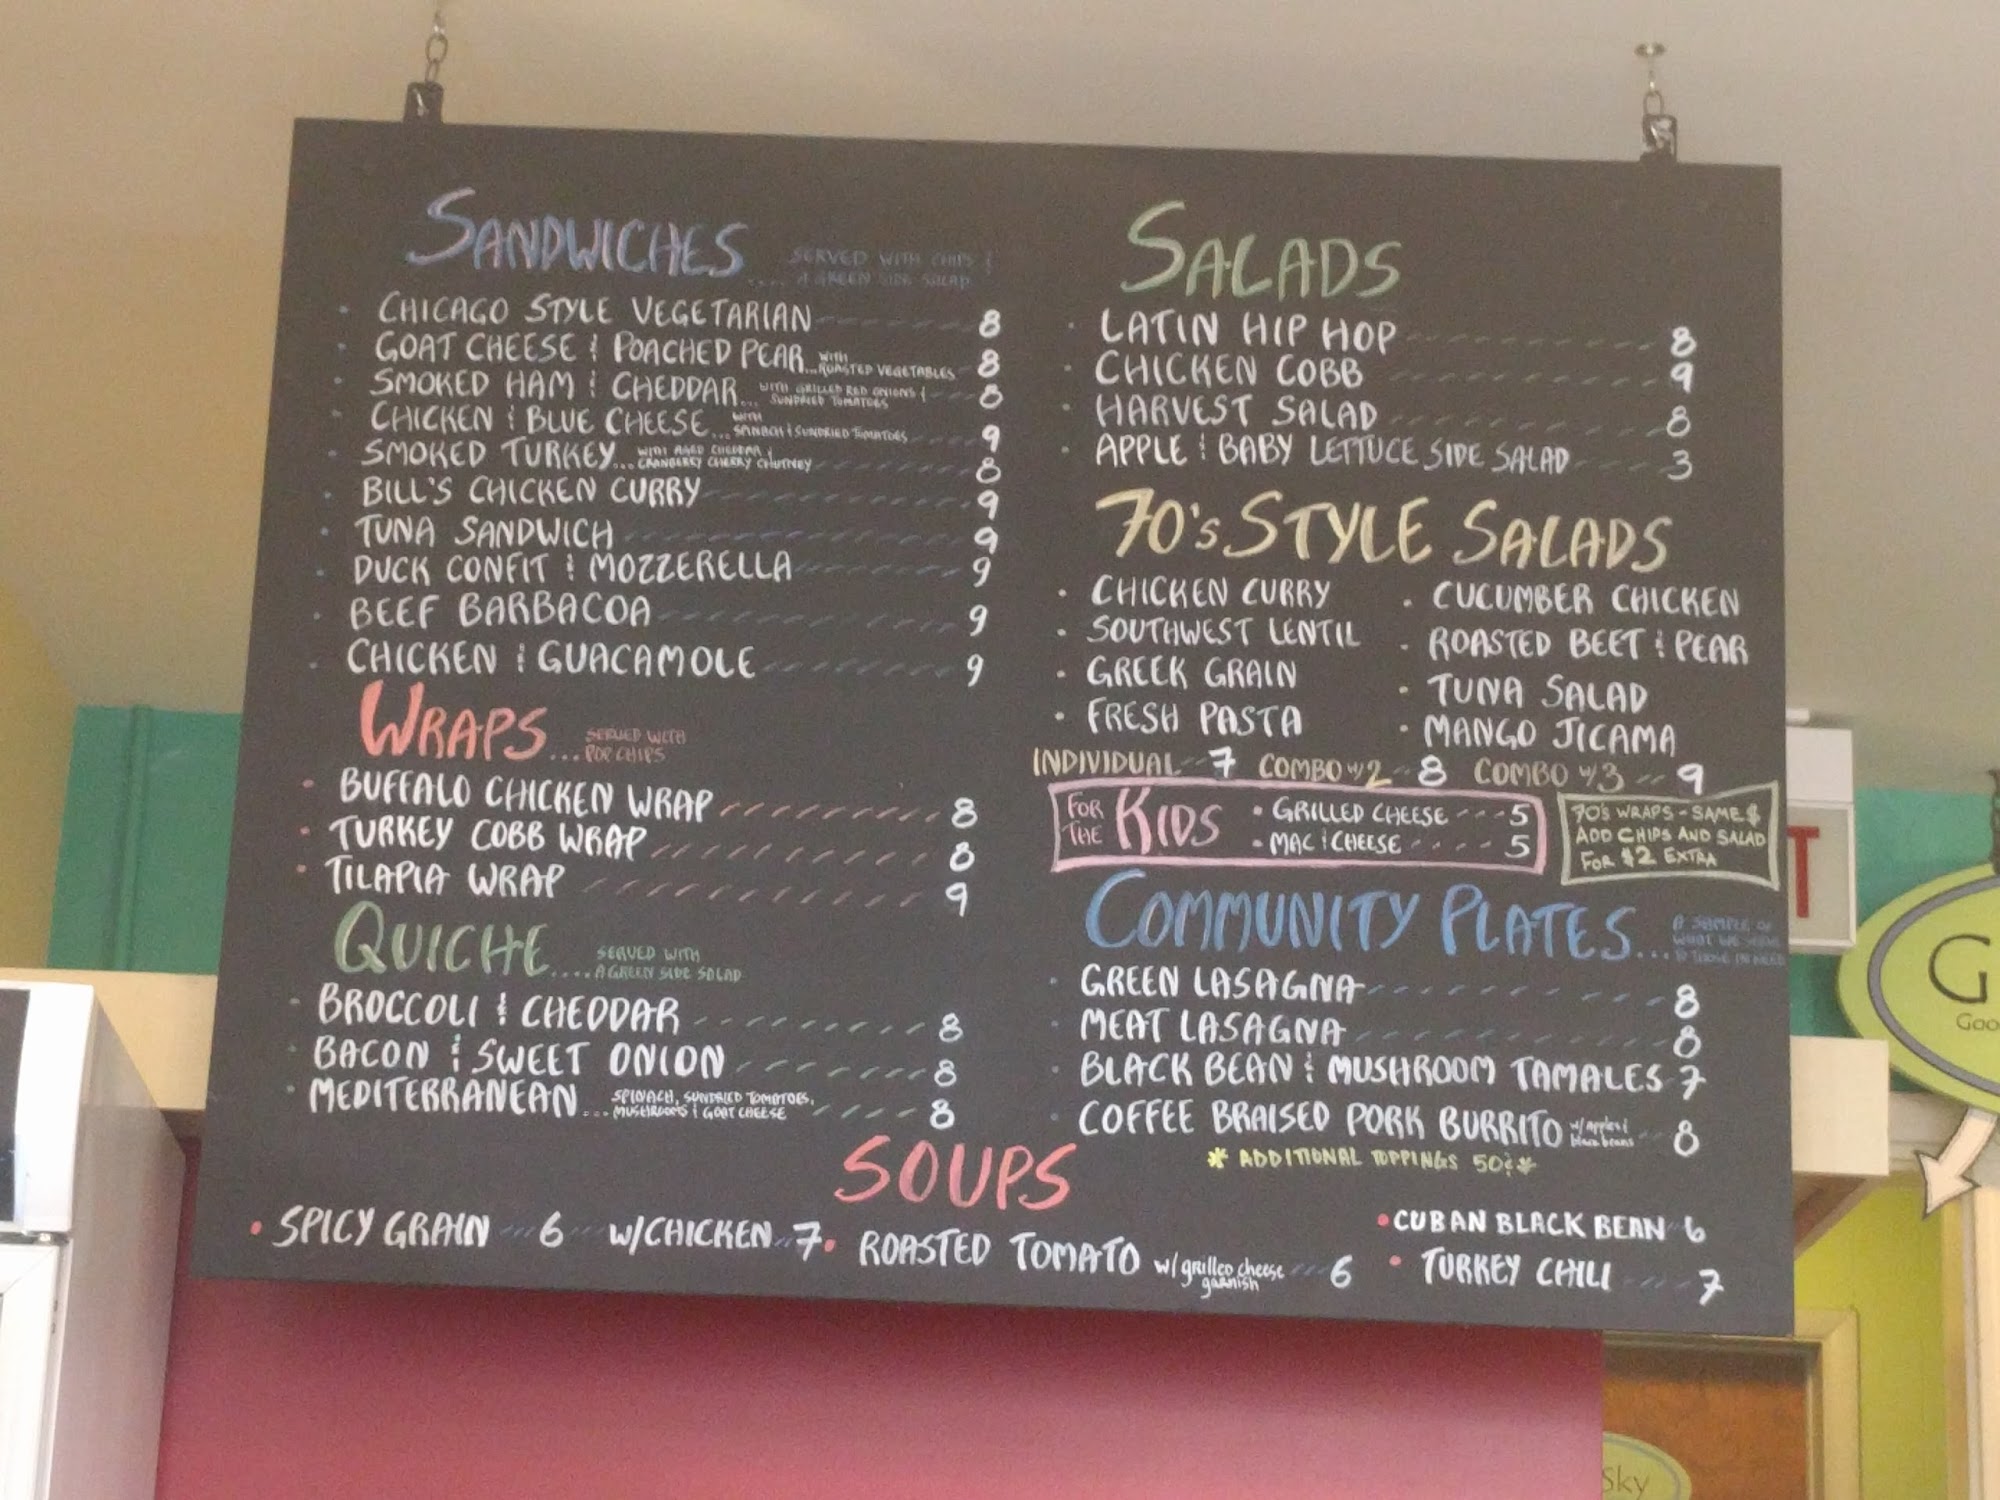 SANDWICHES .... SERVED WITH CHIPS &
A GREEN SIDE SALAD
· CHICAGO STYLE VEGETARIAN 8
· GOAT CHEESE & POACHED PEAR ... WITH ROASTED VEGETABLES 8
· SMOKED HAM & CHEDDAR ... WITH GRILLED RED ONIONS & SUNDRIED TOMATOES 8
· CHICKEN & BLUE CHEESE ... WITH SPINACH & SUNDRIED TOMATOES 9
· SMOKED TURKEY ... WITH AGED CHEDDAR & CRANBERRY CHERRY CHUTNEY 8
· BILL'S CHICKEN CURRY 9
· TUNA SANDWICH 9
· DUCK CONFIT & MOZZERELLA 9
· BEEF BARBACOA 9
· CHICKEN & GUACAMOLE 9
WRAPS ... SERVED WITH
POP CHIPS
· BUFFALO CHICKEN WRAP 8
· TURKEY COBB WRAP 8
· TILAPIA WRAP 9
QUICHE .... SERVED WITH
A GREEN SIDE SALAD
· BROCCOLI & CHEDDAR 8
· BACON & SWEET ONION 8
· MEDITERRANEAN ... SPINACH, SUNDRIED TOMATOES, MUSHROOMS & GOAT CHEESE 8
SALADS
· LATIN HIP HOP 8
· CHICKEN COBB 9
· HARVEST SALAD 8
· APPLE & BABY LETTUCE SIDE SALAD 3
70's STYLE SALADS
· CHICKEN CURRY
· SOUTHWEST LENTIL
· GREEK GRAIN
· FRESH PASTA
· CUCUMBER CHICKEN
· ROASTED BEET & PEAR
· TUNA SALAD
· MANGO JICAMA
INDIVIDUAL 7 COMBO w/2 8 COMBO w/3 9
FOR THE KIDS
· GRILLED CHEESE 5
· MAC & CHEESE 5
70's WRAPS - SAME $
ADD CHIPS AND SALAD
FOR $2 EXTRA
COMMUNITY PLATES ... A SAMPLE OF
WHAT WE SERVE
TO THOSE IN NEED
· GREEN LASAGNA 8
· MEAT LASAGNA 8
· BLACK BEAN & MUSHROOM TAMALES 7
· COFFEE BRAISED PORK BURRITO w/apples & black beans 8
* ADDITIONAL TOPPINGS 50¢ *
SOUPS
· SPICY GRAIN 6 W/CHICKEN 7
· ROASTED TOMATO w/grilled cheese garnish 6
· CUBAN BLACK BEAN 6
· TURKEY CHILI 7
T
G
Goo
Sky